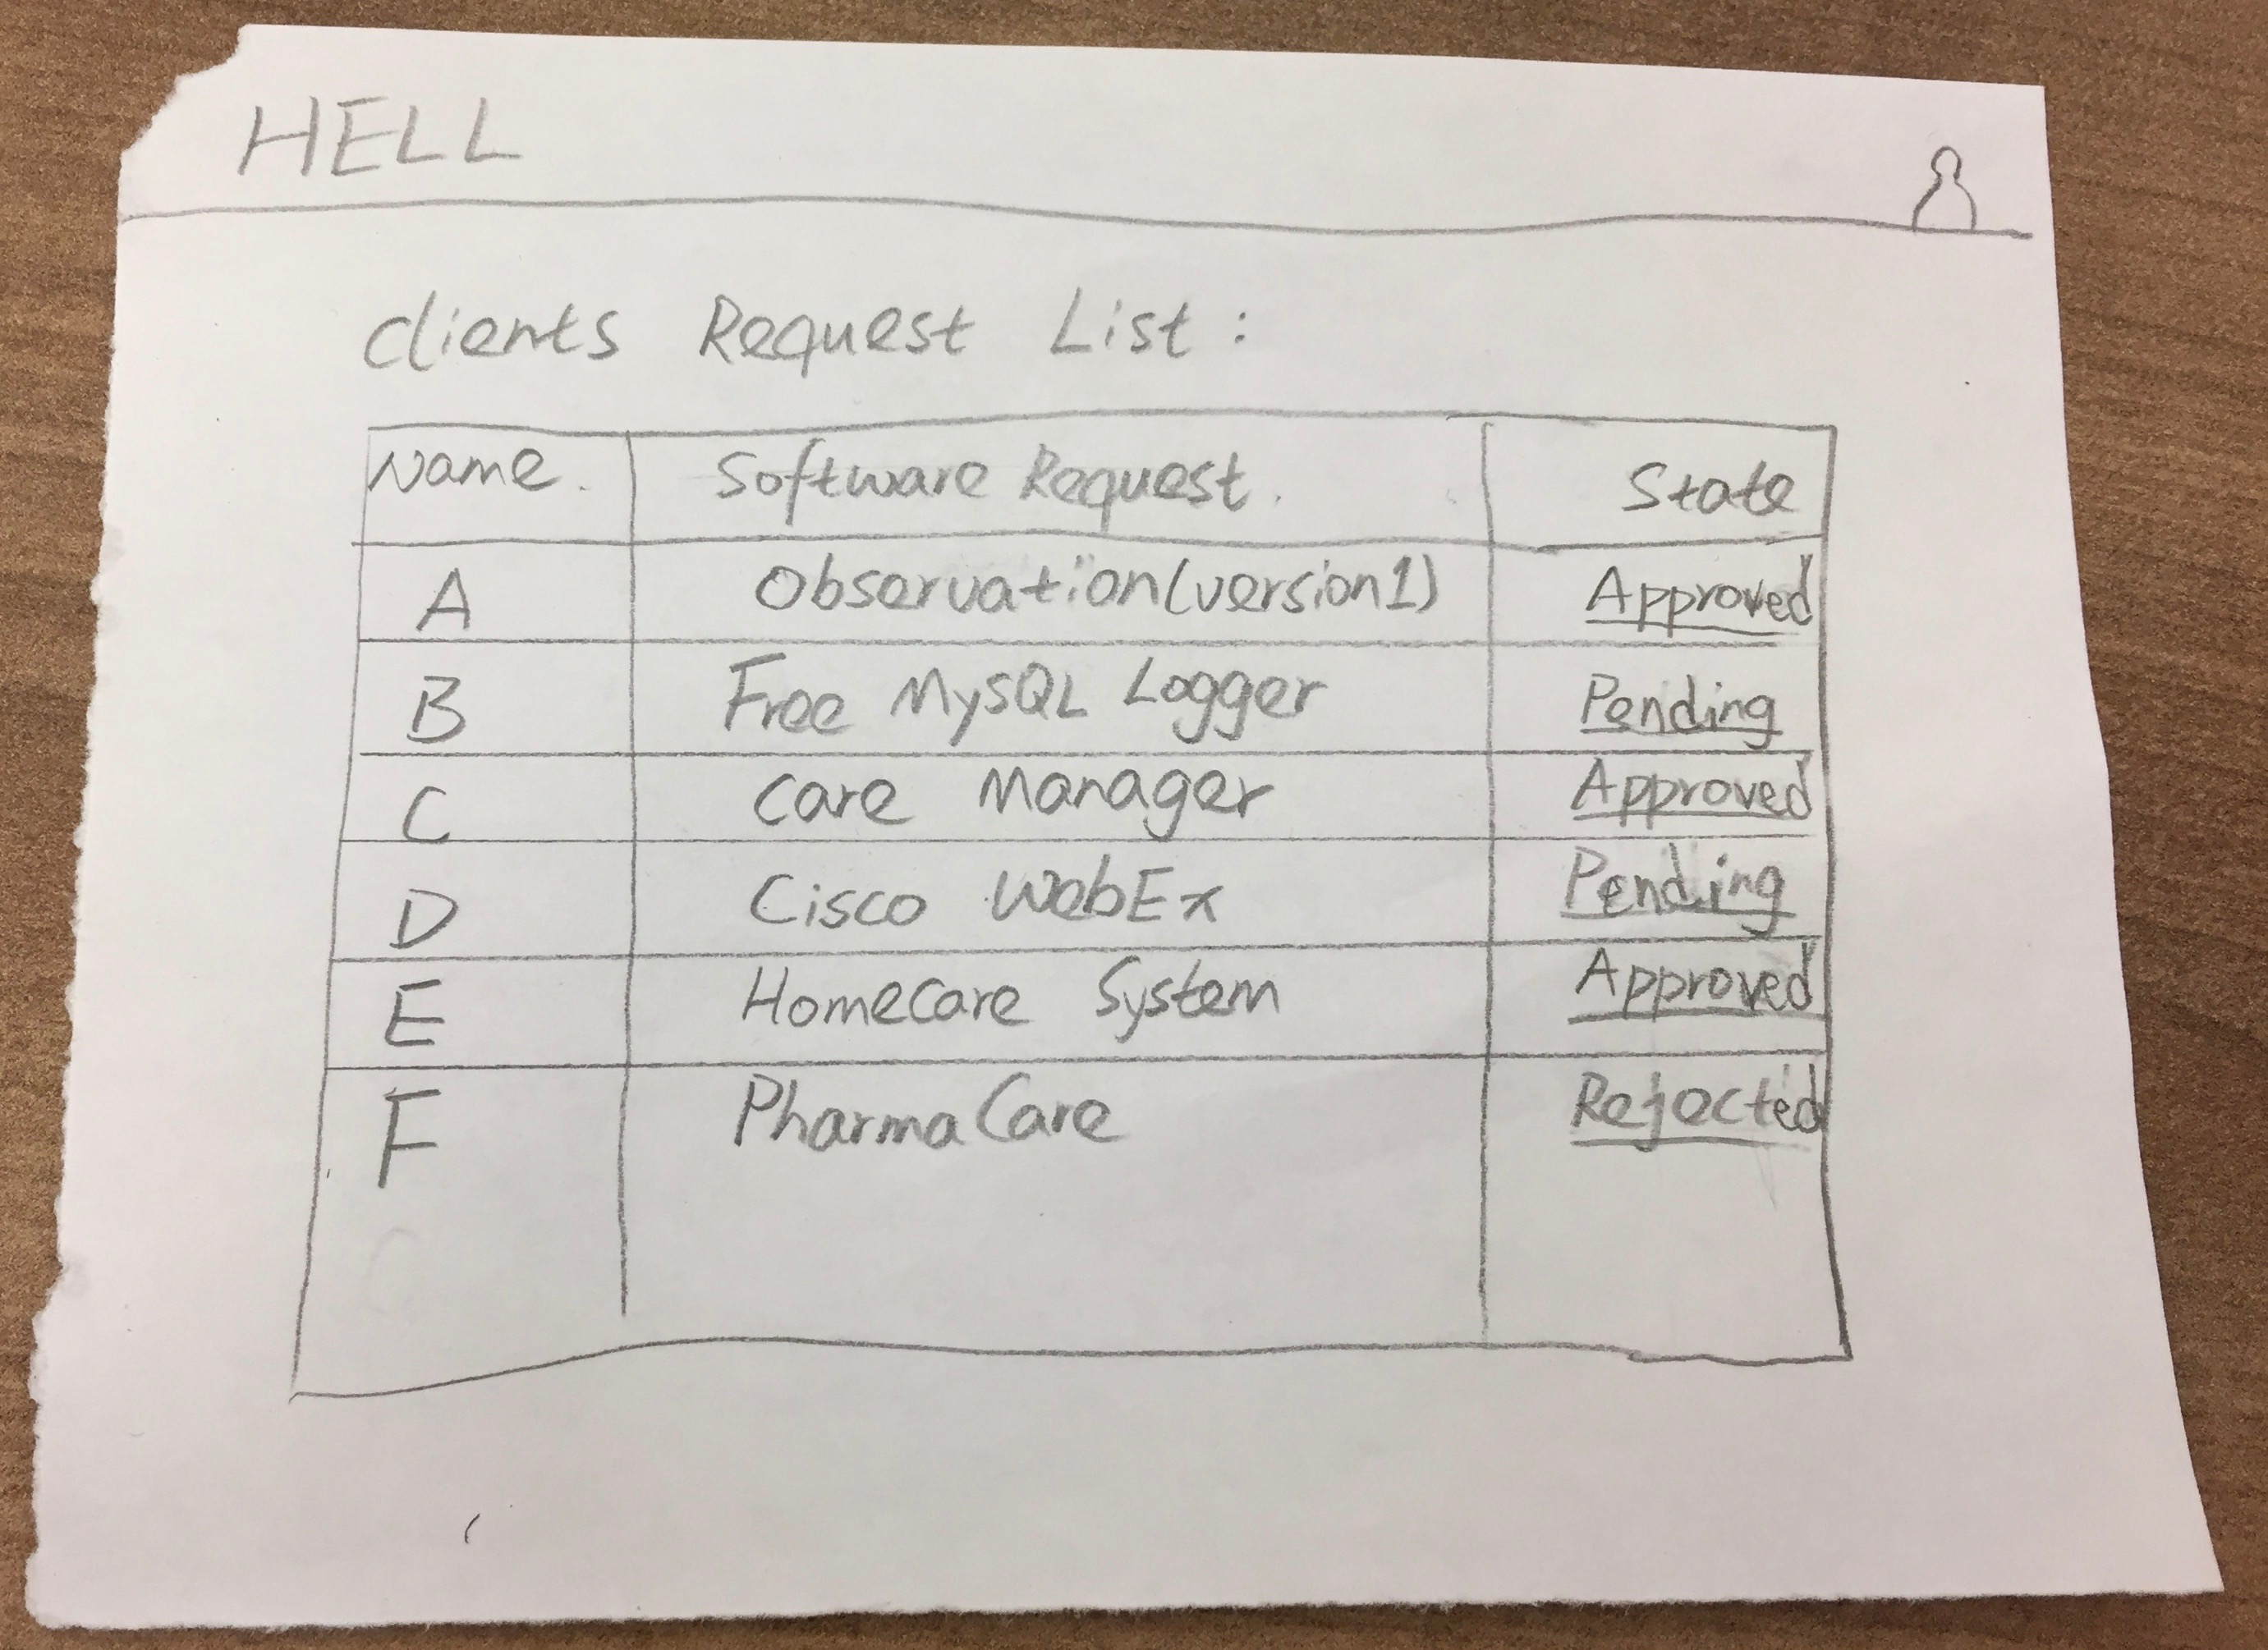 HELL
Clients Request List :
Name. Software Request. State
A Observation(version1) Approved
B Free MySQL Logger Pending
C Care Manager Approved
D Cisco WebEx Pending
E Homecare System Approved
F PharmaCare Rejected